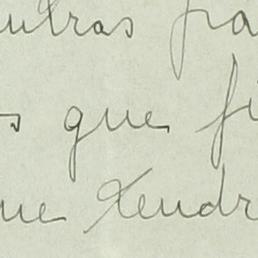 utras pa
s que fi
ue Xendr